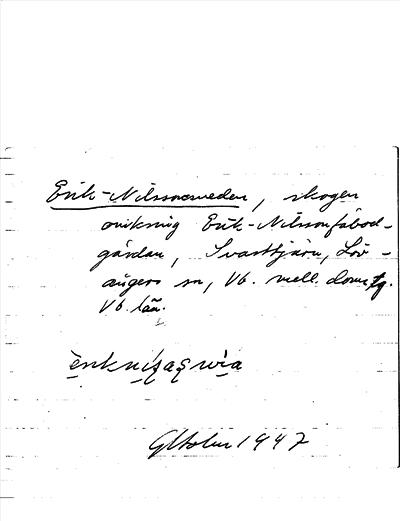 Erik-Nilssonsveden, skogen
omkring Erik-Nilssonfäbod-
gårdan, Svarttjärn, Löv-
ångers sn, Vb. mell. domsg.
Vb. län.
GHolm 1947